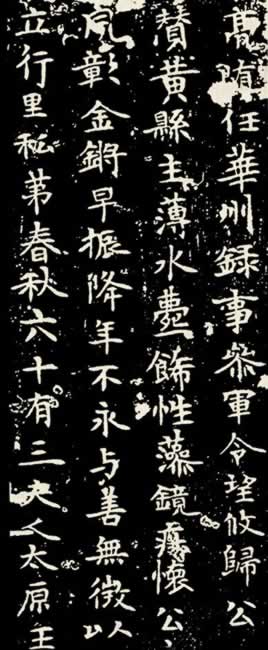 髙陏任華州録事叅軍令望攸歸公
賛黄縣主薄水飾性藻鏡懷公
風彰金鏘早振降年不永与善無徵以
立行里私苐春秋六十有三夫人太原王